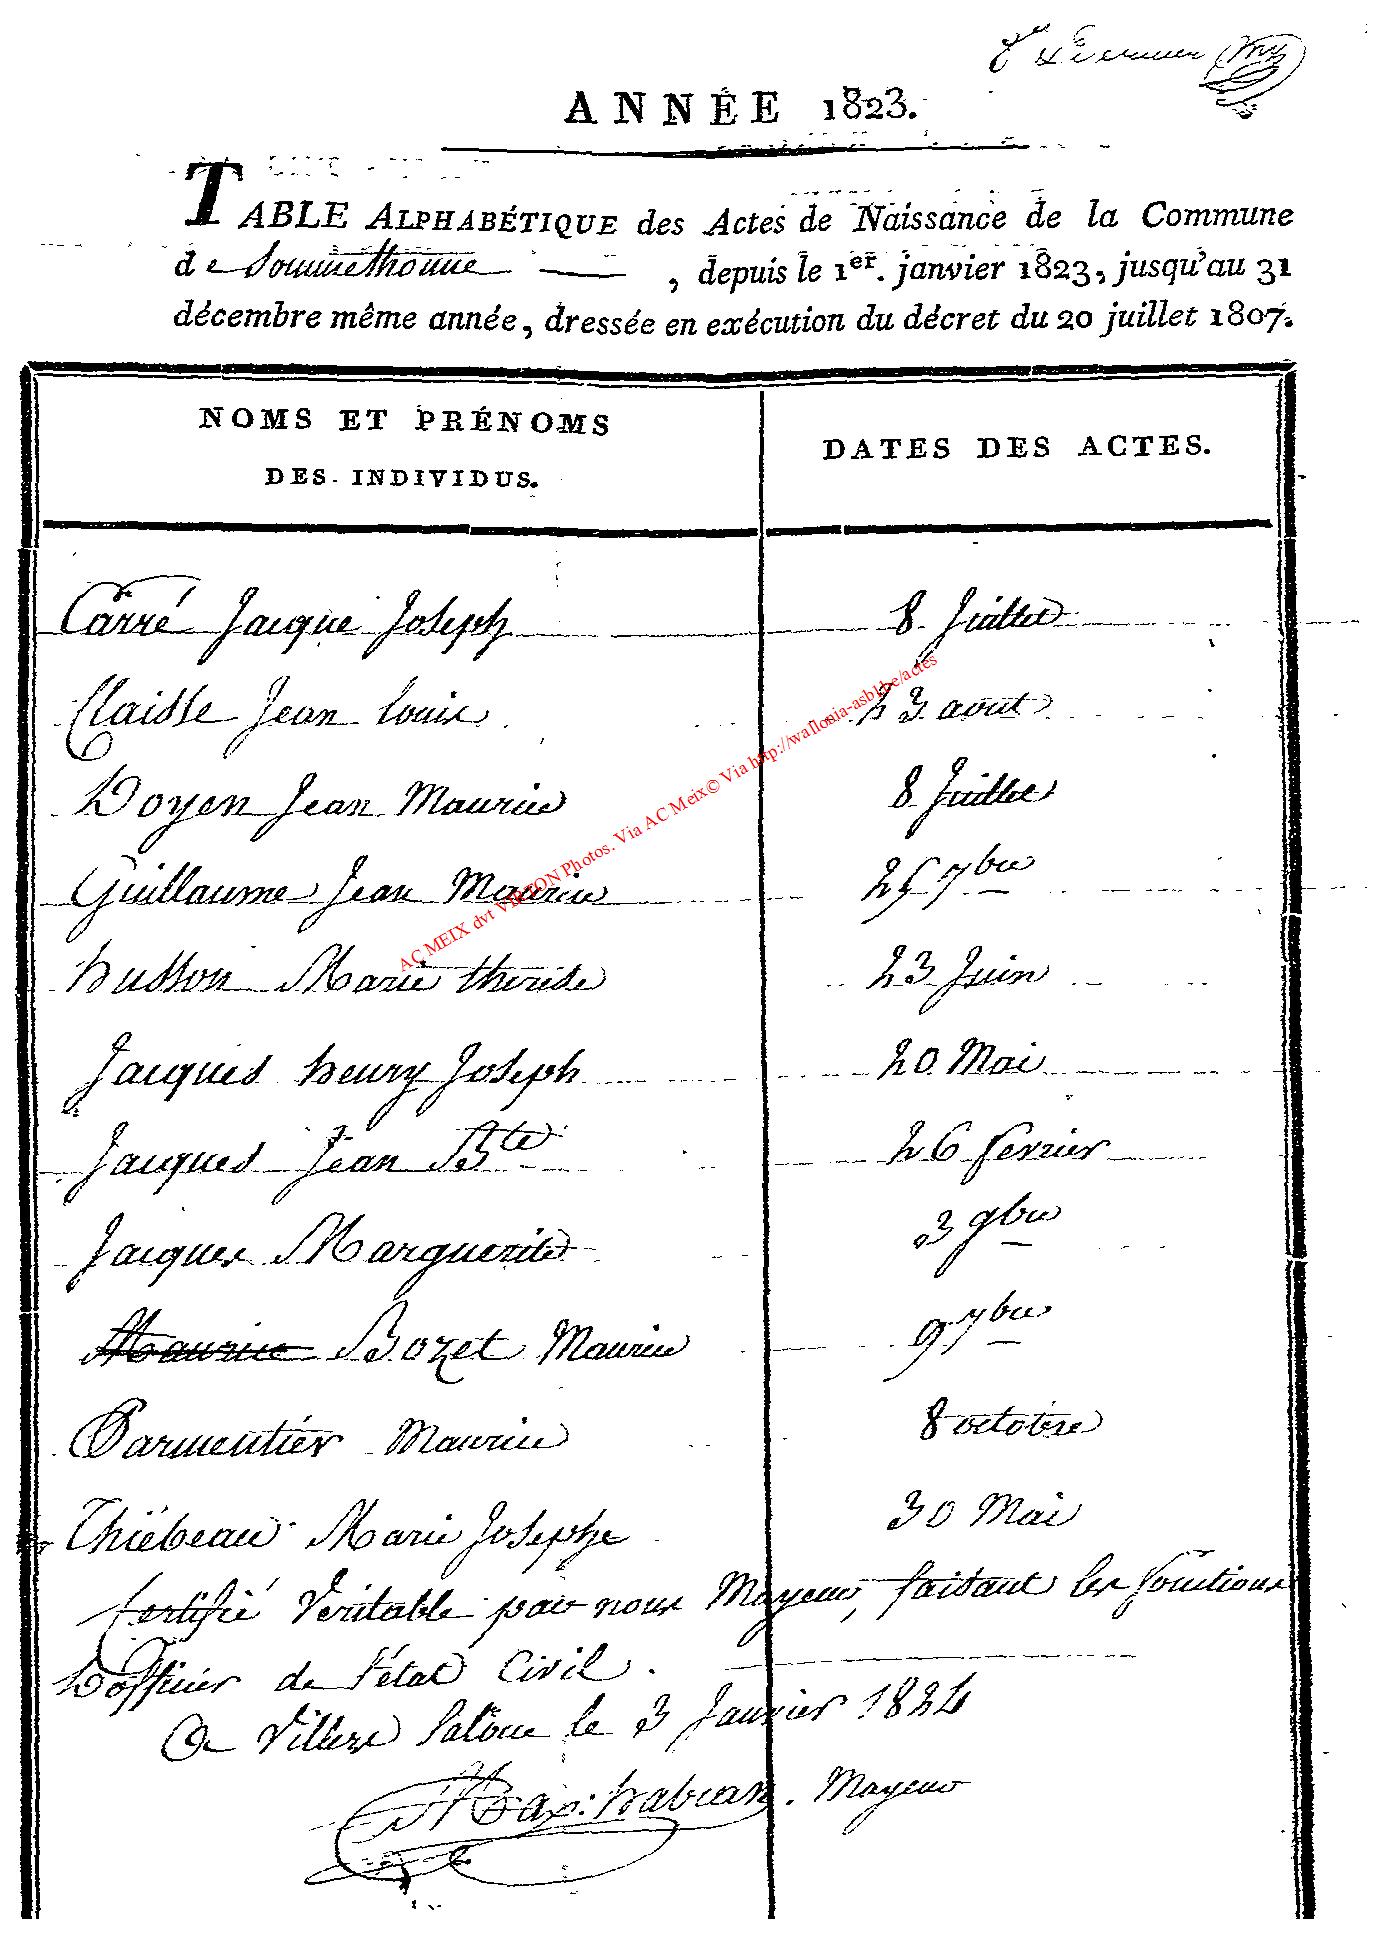 ANNÉE 1823.
TABLE ALPHABÉTIQUE des Actes de Naissance de la Commune
de Sommethonne, depuis le 1er. janvier 1823, jusqu'au 31
décembre même année, dressée en exécution du décret du 20 juillet 1807.
NOMS ET PRÉNOMS
DES INDIVIDUS.
DATES DES ACTES.
Carré Jacque Joseph 8 Juillet
Claisse Jean Louis 23 aout
Doyen Jean Maurice 8 Juillet
Guillaume Jean Maurice 25 7bre
husson Marie therese 23 Juin
Jacques henry Joseph 20 Mai
Jacques Jean Bte 26 fevrier
Jacques Marguerite 3 9bre
Maurice Bozet Maurice 9 7bre
Parmentier Maurice 8 octobre
Thiébeau Marie Josephe 30 Mai
Certifié Veritable par nous Mayeur, faisant les fonctions
D'officier de l'état Civil.
A Villers la loue le 3 Janvier 1824
Max: habran. Mayeur
AC MEIX dvt VIRTON Photos. Via AC Meix© Via http://wallonia-asbl.be/actes